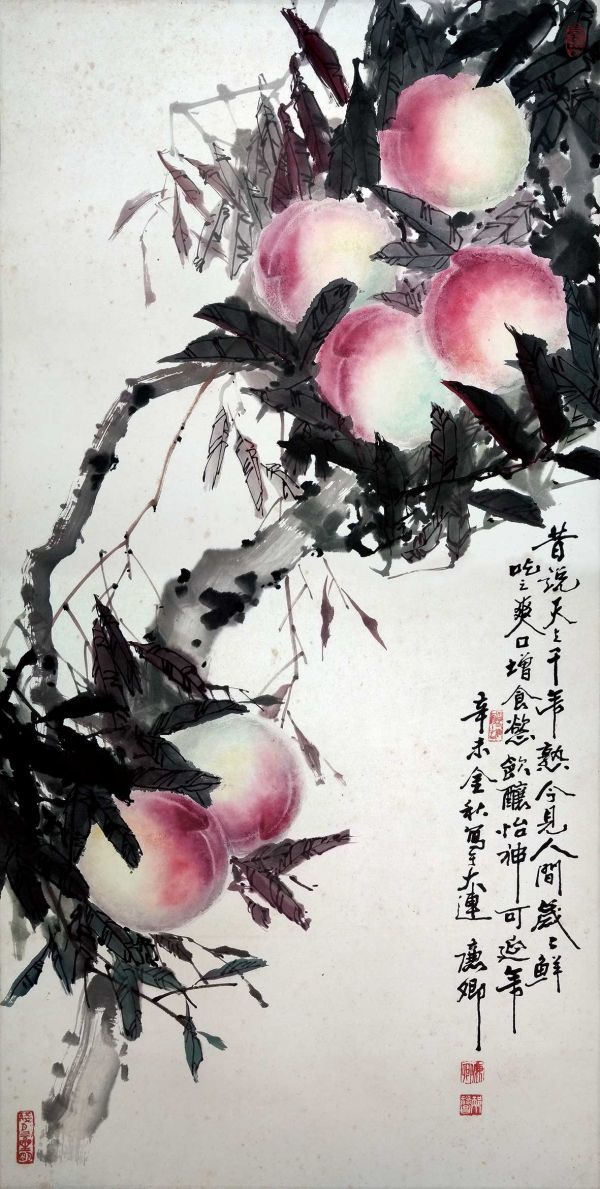 昔説天上千年熟今見人間歲々鮮
吃之爽口增食慾飲釀怡神可延年
辛未金秋寫于大連 廉卿